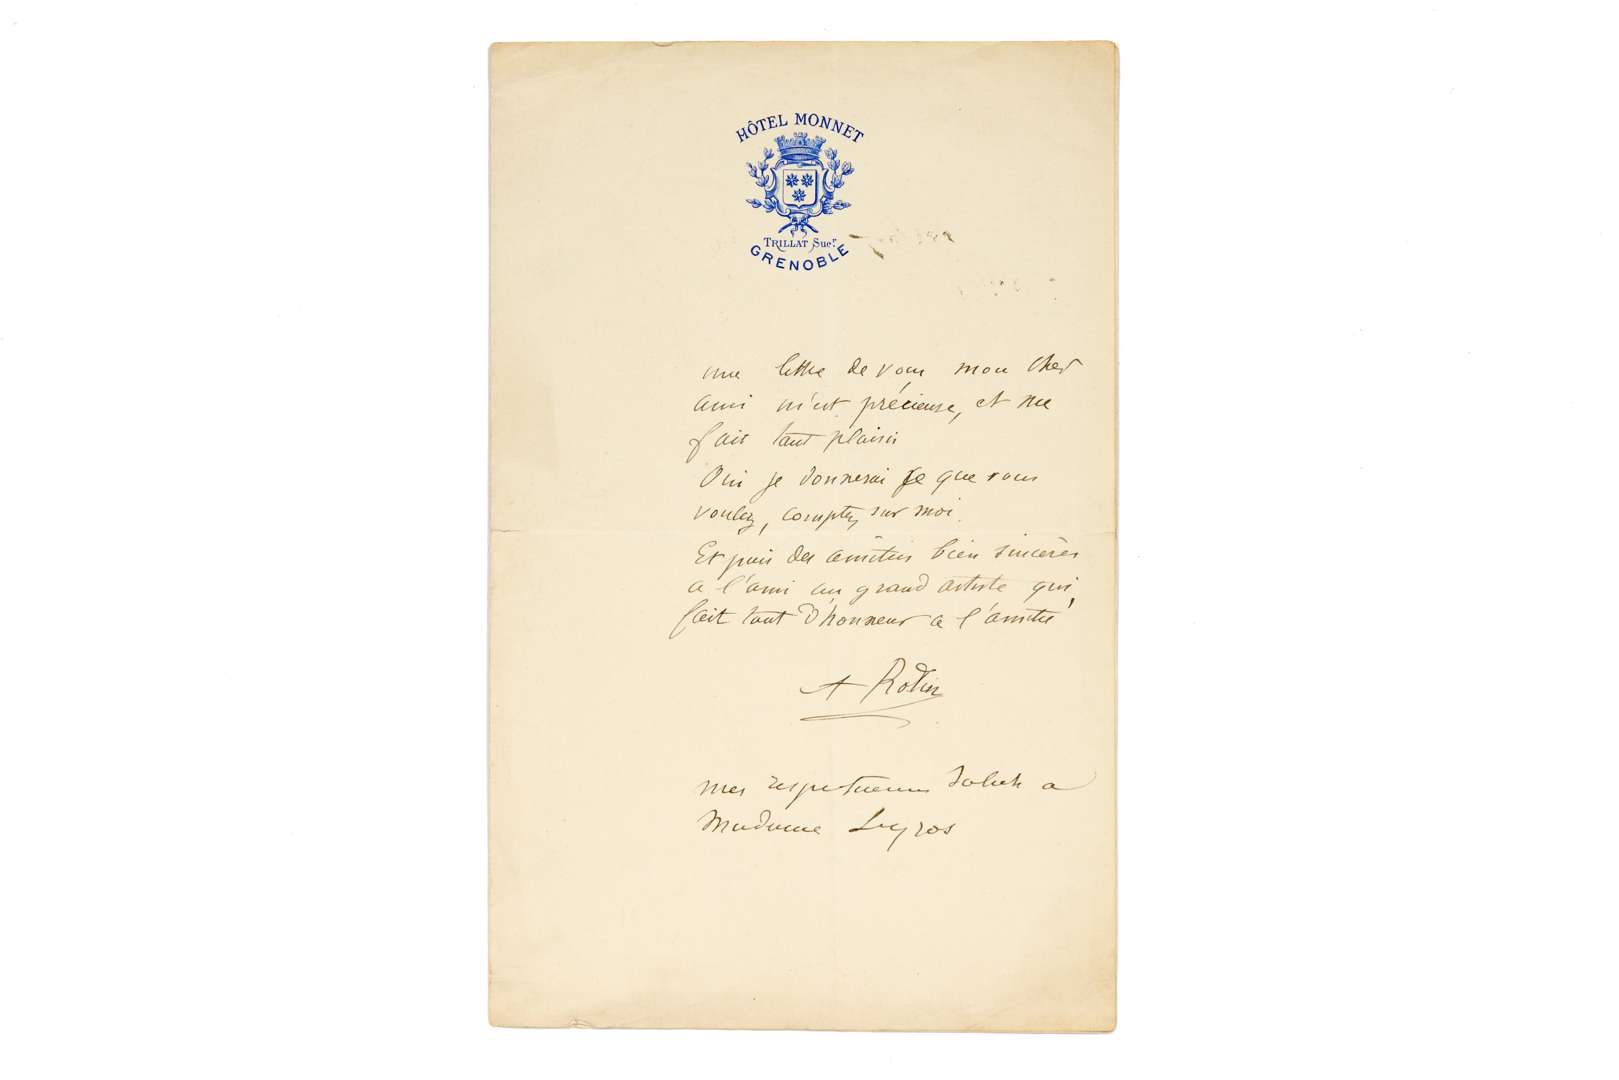 HÔTEL MONNET
TRILLAT Sucr.
GRENOBLE
une lettre de vous mon cher
ami m'est précieuse, et me
fait tant plaisir
Oui je donnerai ce que vous
voulez, comptez sur moi.
Et puis des amitiés bien sincères
a l'ami au grand artiste qui
fait tant d'honneur a l'amitié
A Rodin
mes respectueux saluts a
Madame